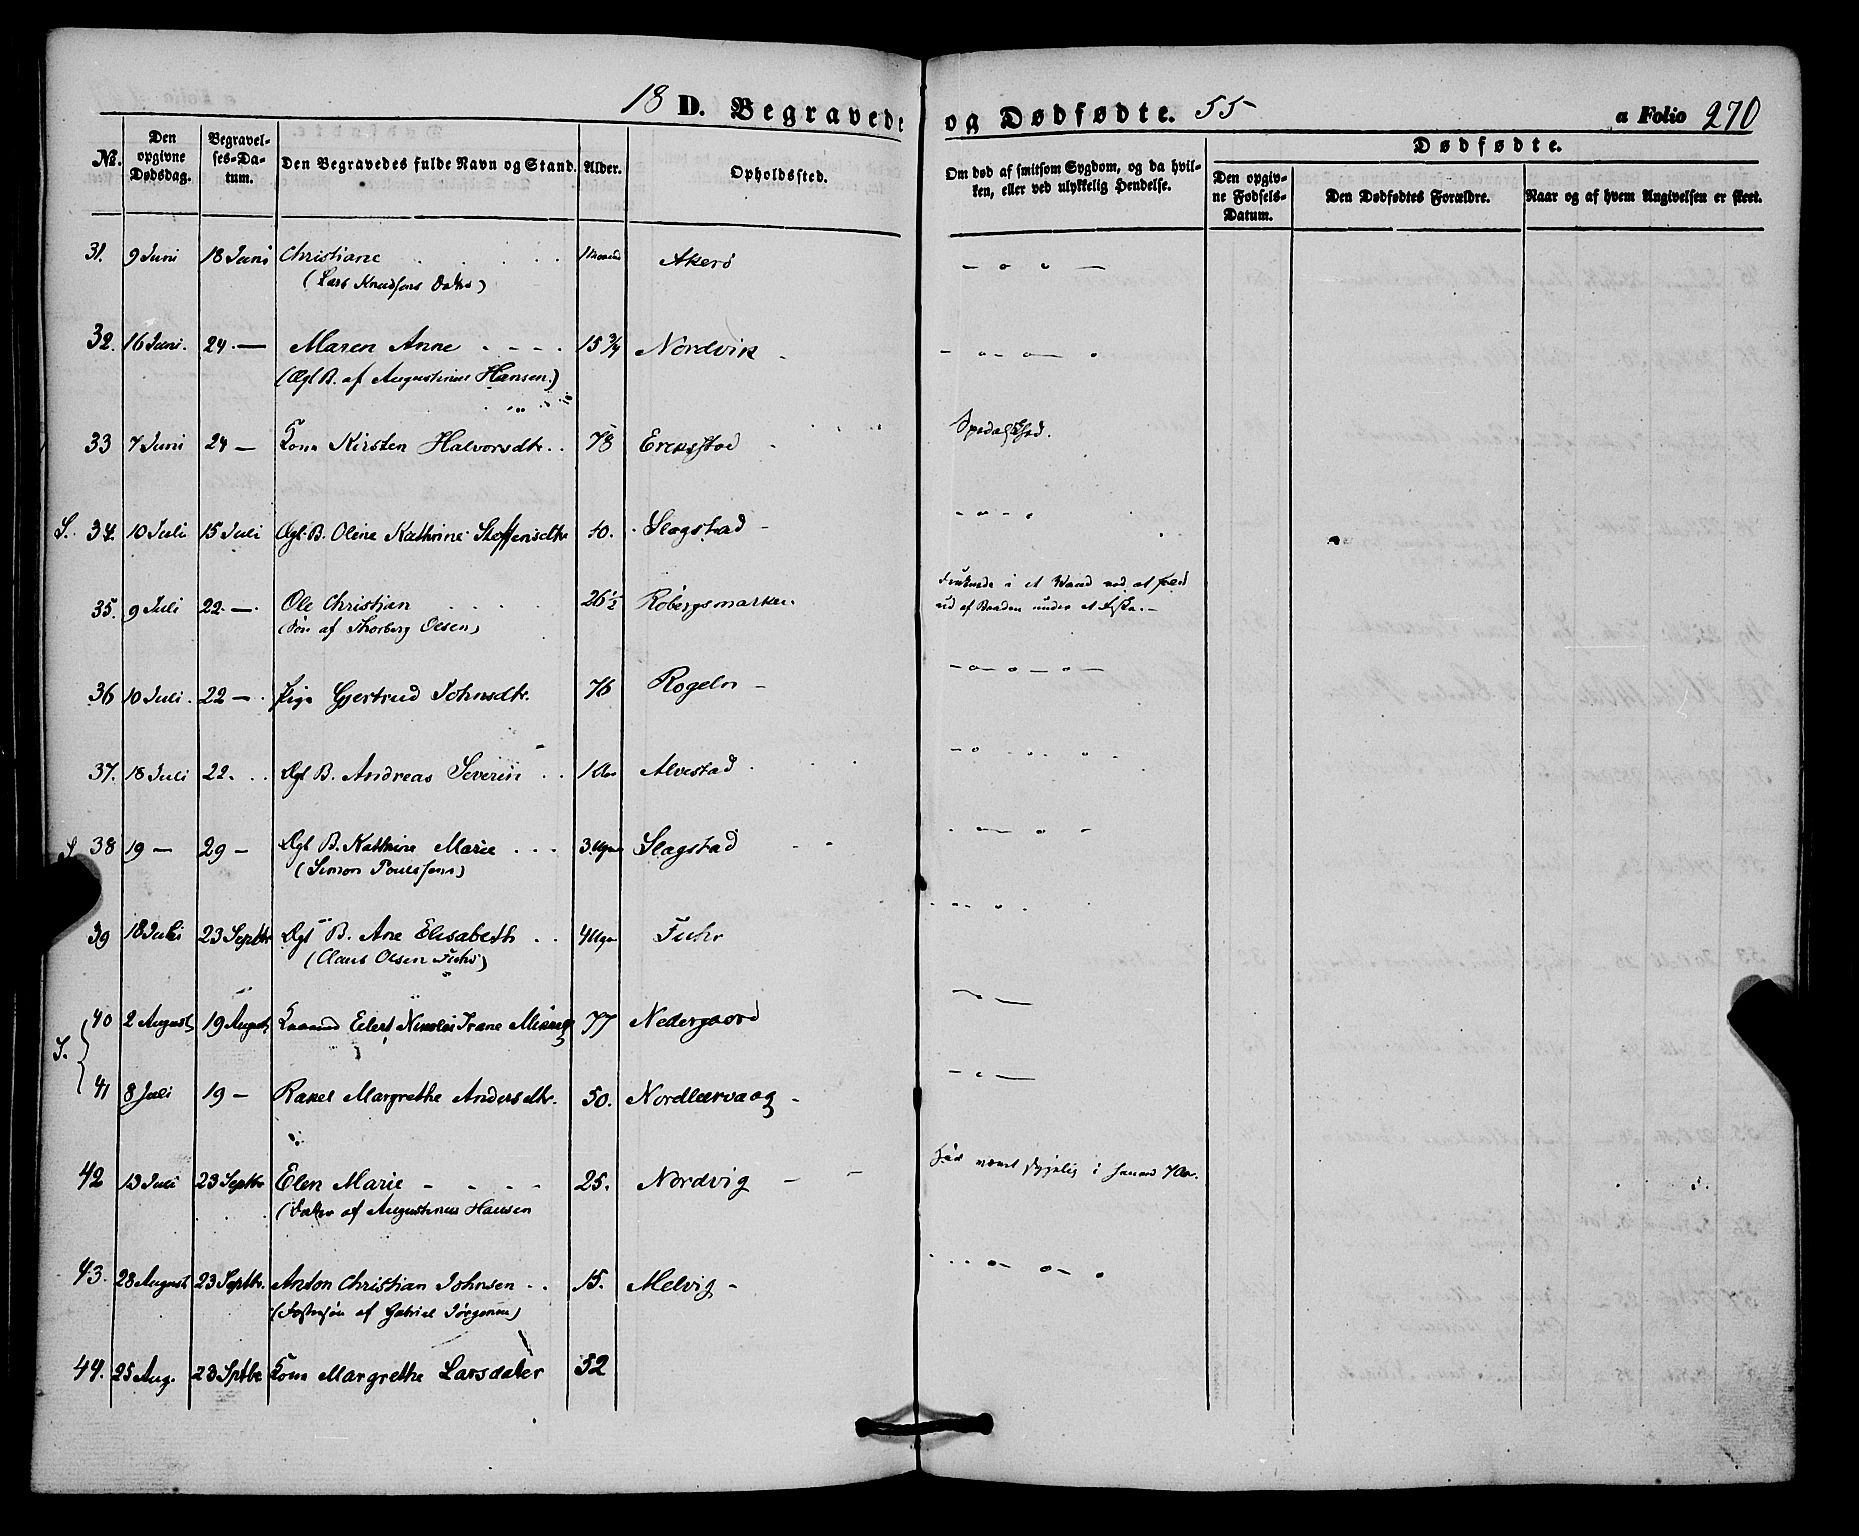 18 D. Begravede og Dødfødte. 55 a Folio 270
No. Den opgivne Dødsdag. Begravelses-Datum. Den Begravedes fulde Navn og Stand. Alder. Opholdssted. Om død af smitsom Sygdom, og da hvilken, eller ved ulykkelig Hendelse. Dødfødte.
Den opgivne Fødsels-Datum. Den Dødfødtes Forældre. Naar og af hvem Angivelsen er skeet.
31. 9 Juni 18 Juni Christiane Akerø — o o —
(Lars Knudsens Datter)
32. 16 Juni. 24 — Maren Anne - - - - 15 3/4 Nordvik - - o - o — o
(Ægt B. af Augustinus Hansen.)
33 7 Juni 24 — Kone Kirsten Halvorsdtr. . 78 Spedalskhed.
S. 34. 10 Juli 15 Juli Ægt. B. Oline Kathrine Stoffensdtr 40. Slagstad - - o - o
35. 9 Juli 22 — . Ole Christian 26 1/2 Røbergsmarken.
(Søn af Thorberg Olsen)
ud af Baaden under et Fiske. —
36 10 Juli . 22 — . Pige Gjertrud Johnsdtr. 76 Rogeln - - o - o - o —
37. 18 Juli 22. . . Ægt B. Andreas Severin . . 1 Alvestad
S 38 19 — 29 — Ægt B. Kathrine Marie . . . 3 Uger Slagstad
(Simon Poulssens)
39 18 Juli 23 Septbr Ægt B. Ane Elisabeth . . 4 Uger Fuhr
(Claus Olsen Fuhr)
S. 40 2 August 19 August Eilert Nikolai Irane 77 Nedergaard
41 8 Juli 19 — Rakel Margrethe Andersdtr. 50. Nordlærvaag -
42 13 Juli 23 Septbr Elen Marie - - - - 25. Nordvig - i 7 Aar.
(Datter af Augustinus Hansen
43. 28 August 23 Septbr. Anton Christian Johnsen - . 15. Melvig -
(Fostersøn af Gabriel Jørgensen)
44. 25 Aug. 23 Sptbr Kone Margrethe Larsdater 52